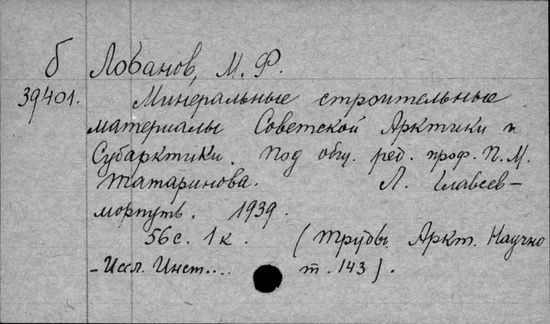 б Лобанов, М. Ф.
39401. Минеральные строительные
материалы Советской Арктики и
Субарктики. Под общ. ред. проф. П. М.
Татаринова. Л. Главсев-
морпуть. 1939.
56 с. 1 к. (Труды Аркт. Научно
-Иссл. Инст.... т. 143).